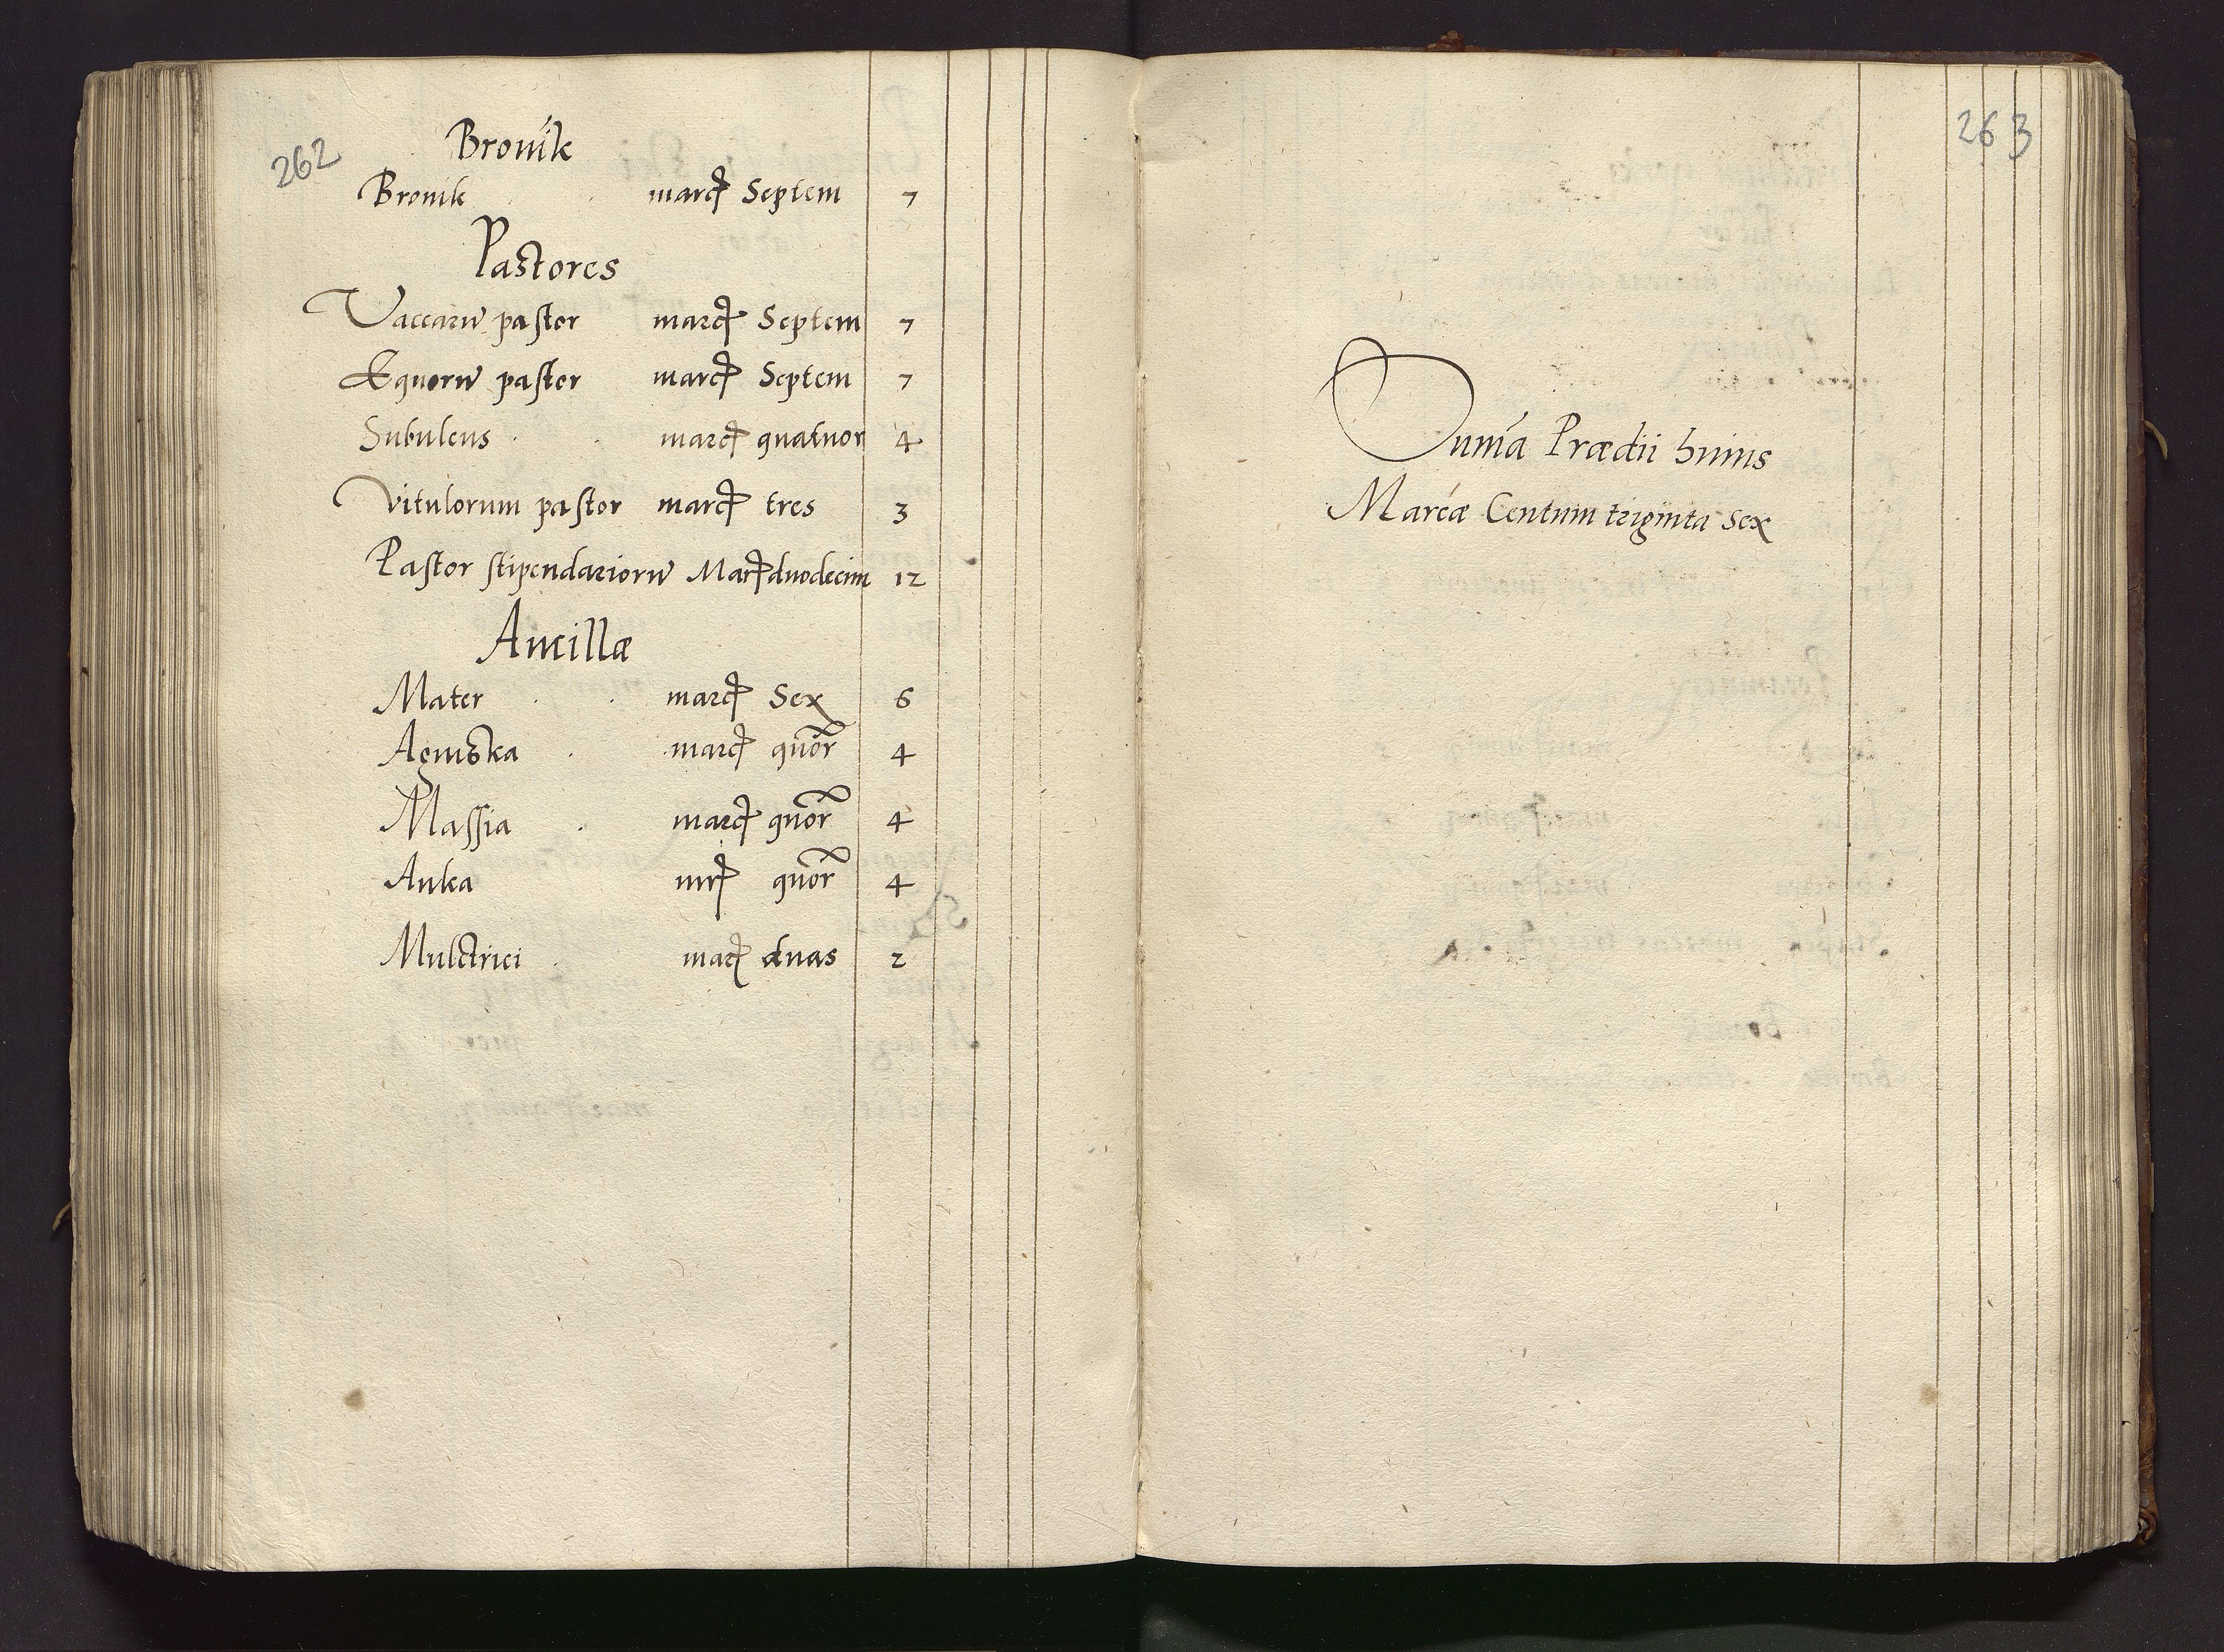 262
Brovik
Brovik marcę Septem 7
Pastores
Vaccarū pastor marcę Septem 7
Equorū pastor marcę Septem 7
Subulcus marcę quatuor 4
Vitulorum pastor marcę tres 3
Pastor stipendariorū Marcę duodecim 12
Ancillæ
Mater marcę Sex 6
Agniska marcę quõr 4
Massia marcę quõr 4
Anka mrę quõr 4
Mulctrici marę duas 2
263
Sum̃a Prædii huius
Marcæ Centum triginta sex